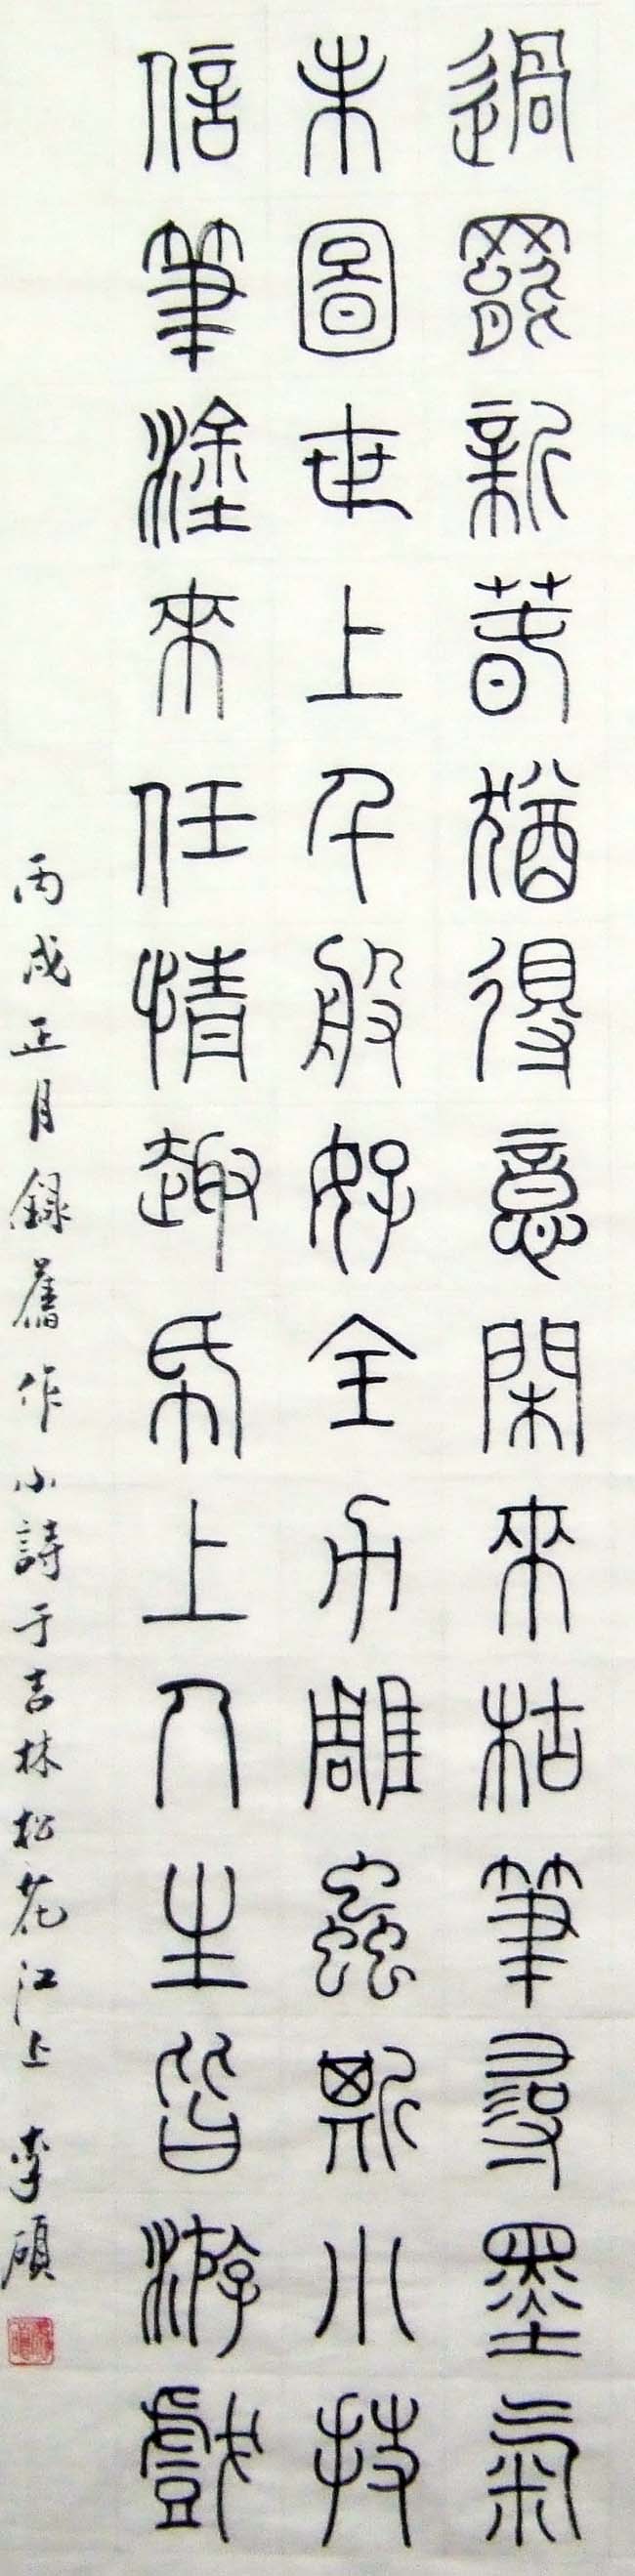 過罷新春猶得意閑來枯筆尋墨氣
未圖世上千般好全雕蟲斯小技
信筆塗來任情趣帋上人生皆游戲
丙戌正月録舊作小詩于吉林松花江上 李碩